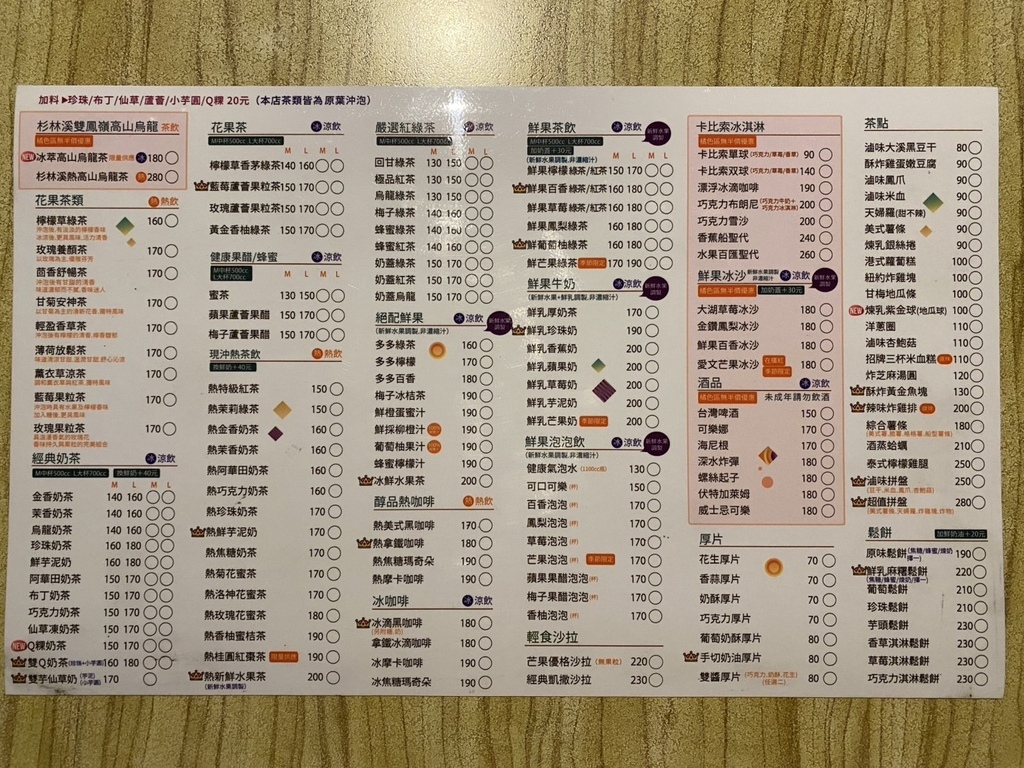 加料▶珍珠/布丁/仙草/蘆薈/小芋圓/Q粿 20元(本店茶類皆為原葉沖泡)
杉林溪雙鳳嶺高山烏龍 茶飲
橘色區無半價優惠
NEW 冰萃高山烏龍茶 限量供應 冰 180
杉林溪熱高山烏龍茶 熱 280
花果茶類 熱 熱飲
檸檬草綠茶 160
玫瑰養顏茶 170
以玫瑰為主,優雅芬芳
茴香舒暢茶 170
甘菊安神茶 170
輕盈香草茶 170
薄荷放鬆茶 170
薰衣草涼茶 170
藍莓果粒茶 170
玫瑰果粒茶 170
經典奶茶 冰 涼飲
M中杯500cc L大杯700cc 換鮮奶+40元
M L M L
金香奶茶 140 160
茉香奶茶 140 160
烏龍奶茶 140 160
珍珠奶茶 160 180
鮮芋泥奶 160 180
阿華田奶茶 150 170
布丁奶茶 150 170
巧克力奶茶 150 170
仙草凍奶茶 150 170
NEW Q粿奶茶 150 170
雙Q奶茶(珍珠+小芋圓) 160 180
雙芋仙草奶(芋泥 小芋圓) 170
花果茶 冰 涼飲
M中杯500cc L大杯700cc
M L M L
檸檬草香茅綠茶 140 160
藍莓蘆薈果粒茶 150 170
玫瑰蘆薈果粒茶 150 170
黃金香柚綠茶 150 170
健康果醋/蜂蜜 冰 涼飲
M中杯500cc
L大杯700cc
M L M L
蜜茶 130 150
蘋果蘆薈果醋 150 170
梅子蘆薈果醋 150 170
現沖熱茶飲 熱 熱飲
換鮮奶+40元
熱特級紅茶 150
熱茉莉綠茶 150
熱金香奶茶 160
熱茉香奶茶 160
熱阿華田奶茶 160
熱巧克力奶茶 160
熱珍珠奶茶 170
熱鮮芋泥奶 170
熱焦糖奶茶 170
熱菊花蜜茶 170
熱洛神花蜜茶 170
熱玫瑰花蜜茶 180
熱香柚蜜桔茶 190
熱桂圓紅棗茶 限量供應 190
熱新鮮水果茶 200
(新鮮水果調製)
嚴選紅綠茶 冰 涼飲
M中杯500cc L大杯700cc
M L M L
回甘綠茶 130 150
極品紅茶 130 150
烏龍綠茶 130 150
梅子綠茶 140 160
蜂蜜綠茶 140 160
蜂蜜紅茶 140 160
奶蓋綠茶 150 170
奶蓋紅茶 150 170
奶蓋烏龍 150 170
絕配鮮果 冰 涼飲 新鮮水果調製
(新鮮水果調製,非濃縮汁)
多多綠茶 160
多多檸檬 170
多多百香 180
梅子冰桔茶 180
鮮橙蛋蜜汁 180
鮮採柳橙汁 190
葡萄柚果汁 190
蜂蜜檸檬汁 180
冰鮮水果茶 200
醇品熱咖啡 熱 熱飲
熱美式黑咖啡 170
熱拿鐵咖啡 180
熱焦糖瑪奇朵 190
熱摩卡咖啡 190
冰咖啡 冰 涼飲
冰滴黑咖啡 180
(另附糖.奶)
拿鐵冰滴咖啡 180
冰摩卡咖啡 190
冰焦糖瑪奇朵 190
鮮果茶飲 冰 涼飲 新鮮水果調製
M中杯500cc L大杯700cc
加奶蓋+30元
(新鮮水果調製,非濃縮汁)
鮮果檸檬綠茶/紅茶 150 170
鮮果百香綠茶/紅茶 160 180
鮮果草莓綠茶/紅茶 160 180
鮮果鳳梨綠茶 160 180
鮮葡萄柚綠茶 160 180
鮮芒果綠茶 季節限定 170 190
鮮果牛奶 冰 涼飲 新鮮水果調製
(新鮮水果+鮮乳調製,非濃縮汁)
鮮乳厚奶茶 170
鮮乳珍珠奶 190
鮮乳香蕉奶 200
鮮乳蘋果奶 200
鮮乳草莓奶 200
鮮乳芋泥奶 200
鮮乳芒果奶 季節限定 200
鮮果泡泡飲 冰 涼飲 新鮮水果調製
(新鮮水果調製,非濃縮汁)
健康氣泡水 (1100cc瓶) 130
可口可樂 (杯) 150
百香泡泡 (杯) 170
鳳梨泡泡 (杯) 170
草莓泡泡 (杯) 170
芒果泡泡 (杯) 季節限定 170
蘋果果醋泡泡 (杯) 170
梅子果醋泡泡 (杯) 170
香柚泡泡 (杯) 170
輕食沙拉
芒果優格沙拉 (無果粒) 220
經典凱撒沙拉 230
卡比索冰淇淋
橘色區無半價優惠
卡比索單球 (巧克力/草莓/香草) 90
卡比索双球 (巧克力/草莓/香草) 140
漂浮冰滴咖啡 190
巧克力布朗尼 (巧克力牛奶+巧克力冰淇淋) 200
巧克力雪沙 200
香蕉船聖代 240
水果百匯聖代 260
鮮果冰沙 新鮮水果調製 非濃縮汁 冰 涼飲
橘色區無半價優惠 加奶蓋+30元
大湖草莓冰沙 180
金鑽鳳梨冰沙 180
鮮果百香冰沙 180
愛文芒果冰沙 在欉紅 季節限定 180
酒品 冰 涼飲
橘色區無半價優惠 未成年請勿飲酒
台灣啤酒 150
可樂娜 170
海尼根 170
深水炸彈 180
螺絲起子 180
伏特加萊姆 180
威士忌可樂 180
厚片
花生厚片 70
香蒜厚片 70
奶酥厚片 70
巧克力厚片 70
葡萄奶酥厚片 80
手切奶油厚片 80
雙醬厚片 (巧克力,奶酥,花生) (任選二) 80
茶點
滷味大溪黑豆干 80
酥炸雞蛋嫩豆腐 90
滷味鳳爪 90
滷味米血 90
天婦羅(甜不辣) 90
美式薯條 90
煉乳銀絲捲 90
港式蘿蔔糕 100
紐約炸雞塊 100
甘梅地瓜條 100
NEW 煉乳紫金球(地瓜球) 100
洋蔥圈 110
滷味杏鮑菇 110
招牌三杯米血糕 110
炸芝麻湯圓 120
酥炸黃金魚塊 130
辣味炸雞排 200
綜合薯條 180
酒蒸蛤蠣 210
泰式檸檬雞腿 250
滷味拼盤 250
(豆干,米血,鳳爪,杏鮑菇)
超值拼盤 280
(美式薯條,天婦羅,炸雞塊,炸物)
鬆餅 加鮮奶油+20元
原味鬆餅 (焦糖/蜂蜜/煉奶 擇一) 190
鮮乳麻糬鬆餅 220
(焦糖/蜂蜜/煉奶/擇一)
葡萄鬆餅 210
珍珠鬆餅 210
芋頭鬆餅 230
香草淇淋鬆餅 230
草莓淇淋鬆餅 230
巧克力淇淋鬆餅 230